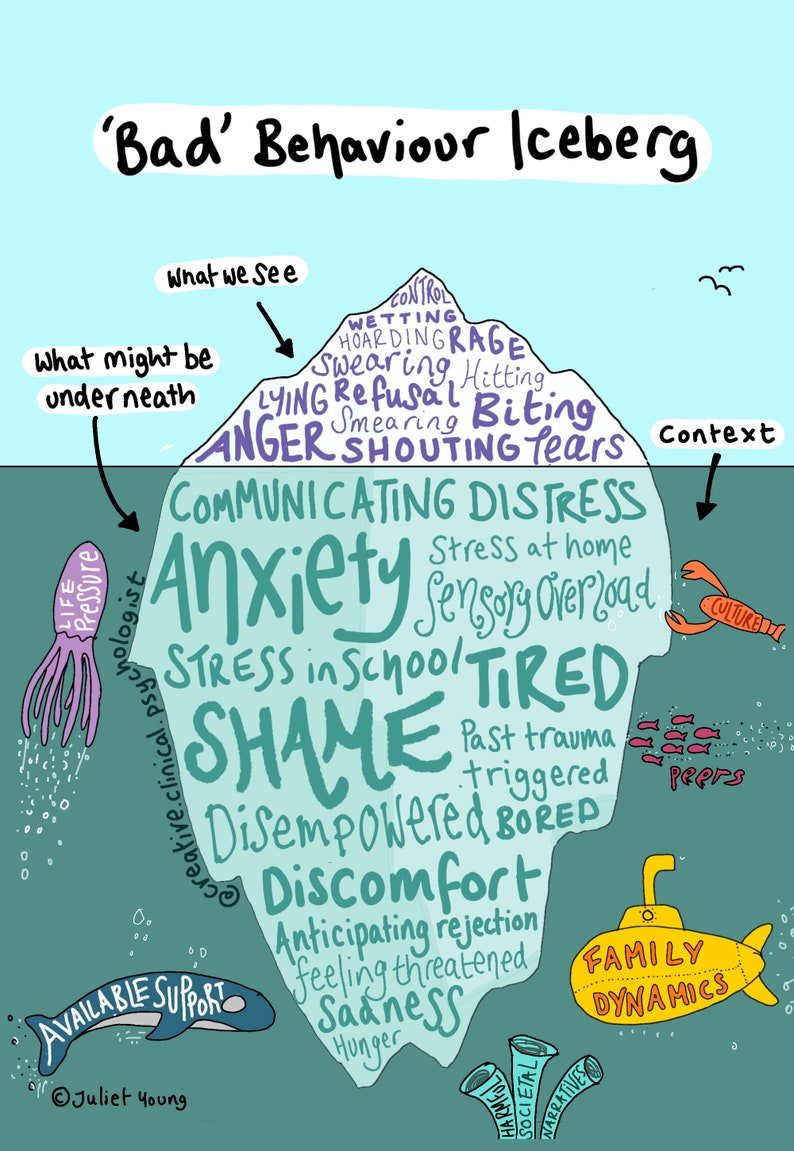 'Bad' Behaviour Iceberg
What we see
What might be
underneath
Context
CONTROL
WETTING
HOARDING RAGE
Swearing Hitting
LYING Refusal Biting
Smearing
ANGER SHOUTING Tears
COMMUNICATING DISTRESS
Anxiety Stress at home
Sensory Overload
STRESS in School TIRED
SHAME Past trauma
triggered
Disempowered BORED
Discomfort
Anticipating rejection
feeling threatened
Sadness
Hunger
LIFE
Pressure
CULTURE
peers
FAMILY
DYNAMICS
AVAILABLE SUPPORT
HARMFUL
SOCIETAL
NARRATIVES
@creative.clinical.psychologist
©Juliet Young